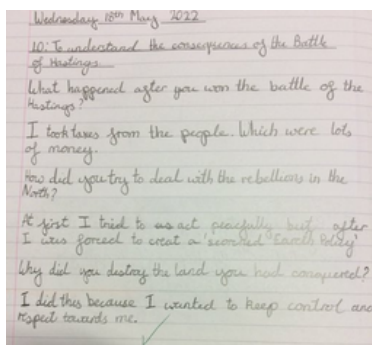 Wednesday 18th May 2022
LO: To understand the consequences of the Battle
of Hastings
What happened after you won the battle of the
Hastings?
I took taxes from the people. Which were lots
of money.
How did you try to deal with the rebellions in the
North?
At first I tried to act peacefully but after
I was forced to creat a 'scorched Earth Policy'
Why did you destroy the land you had conquered?
I did this because I wanted to keep control and
respect towards me.